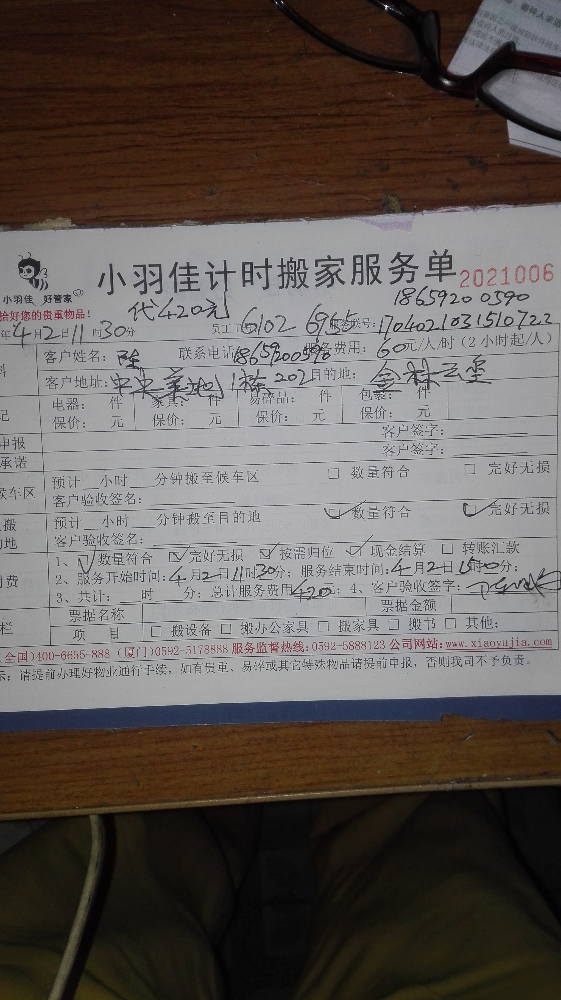 小羽佳 好管家
小羽佳计时搬家服务单 2021006
恰好您的贵重物品!
代420元
18659200590
年4月2日11时30分 员工 6102 6965 170402103151072
客户姓名: 陈 联系电话 18659200590 服务费用: 60元/人/时(2小时起/人)
客户地址: 中央美地1栋202 目的地: 金林云玺
电器: 件 家具: 件 易碎品: 件 包裹: 件
保价: 元 保价: 元 保价: 元 保价: 元
申报 客户签字:
承诺 客户签字:
候车区 预计 小时 分钟搬至候车区 □ 数量符合 □ 完好无损
客户验收签名:
搬 预计 小时 分钟搬至目的地 数量符合 完好无损
的地 客户验收签名:
1、 数量符合 完好无损 按需归位 现金结算 □ 转账汇款
费 2、服务开始时间: 4月2日11时30分; 服务结束时间: 4月2日 分;
3、共计: 时 分; 总计服务费用 420元; 4、客户验收签字:
栏 票据名称 票据金额
项 目 □ 搬设备 □ 搬办公家具 □ 搬家具 □ 搬书 □ 其他:
全国)400-6655-888 (厦门)0592-5178888 服务监督热线:0592-5888123 公司网站:www.xiaoyujia.com
示: 请提前办理好物业通行手续, 如有贵重、易碎或其它特殊物品请提前申报, 否则我司不予负责。